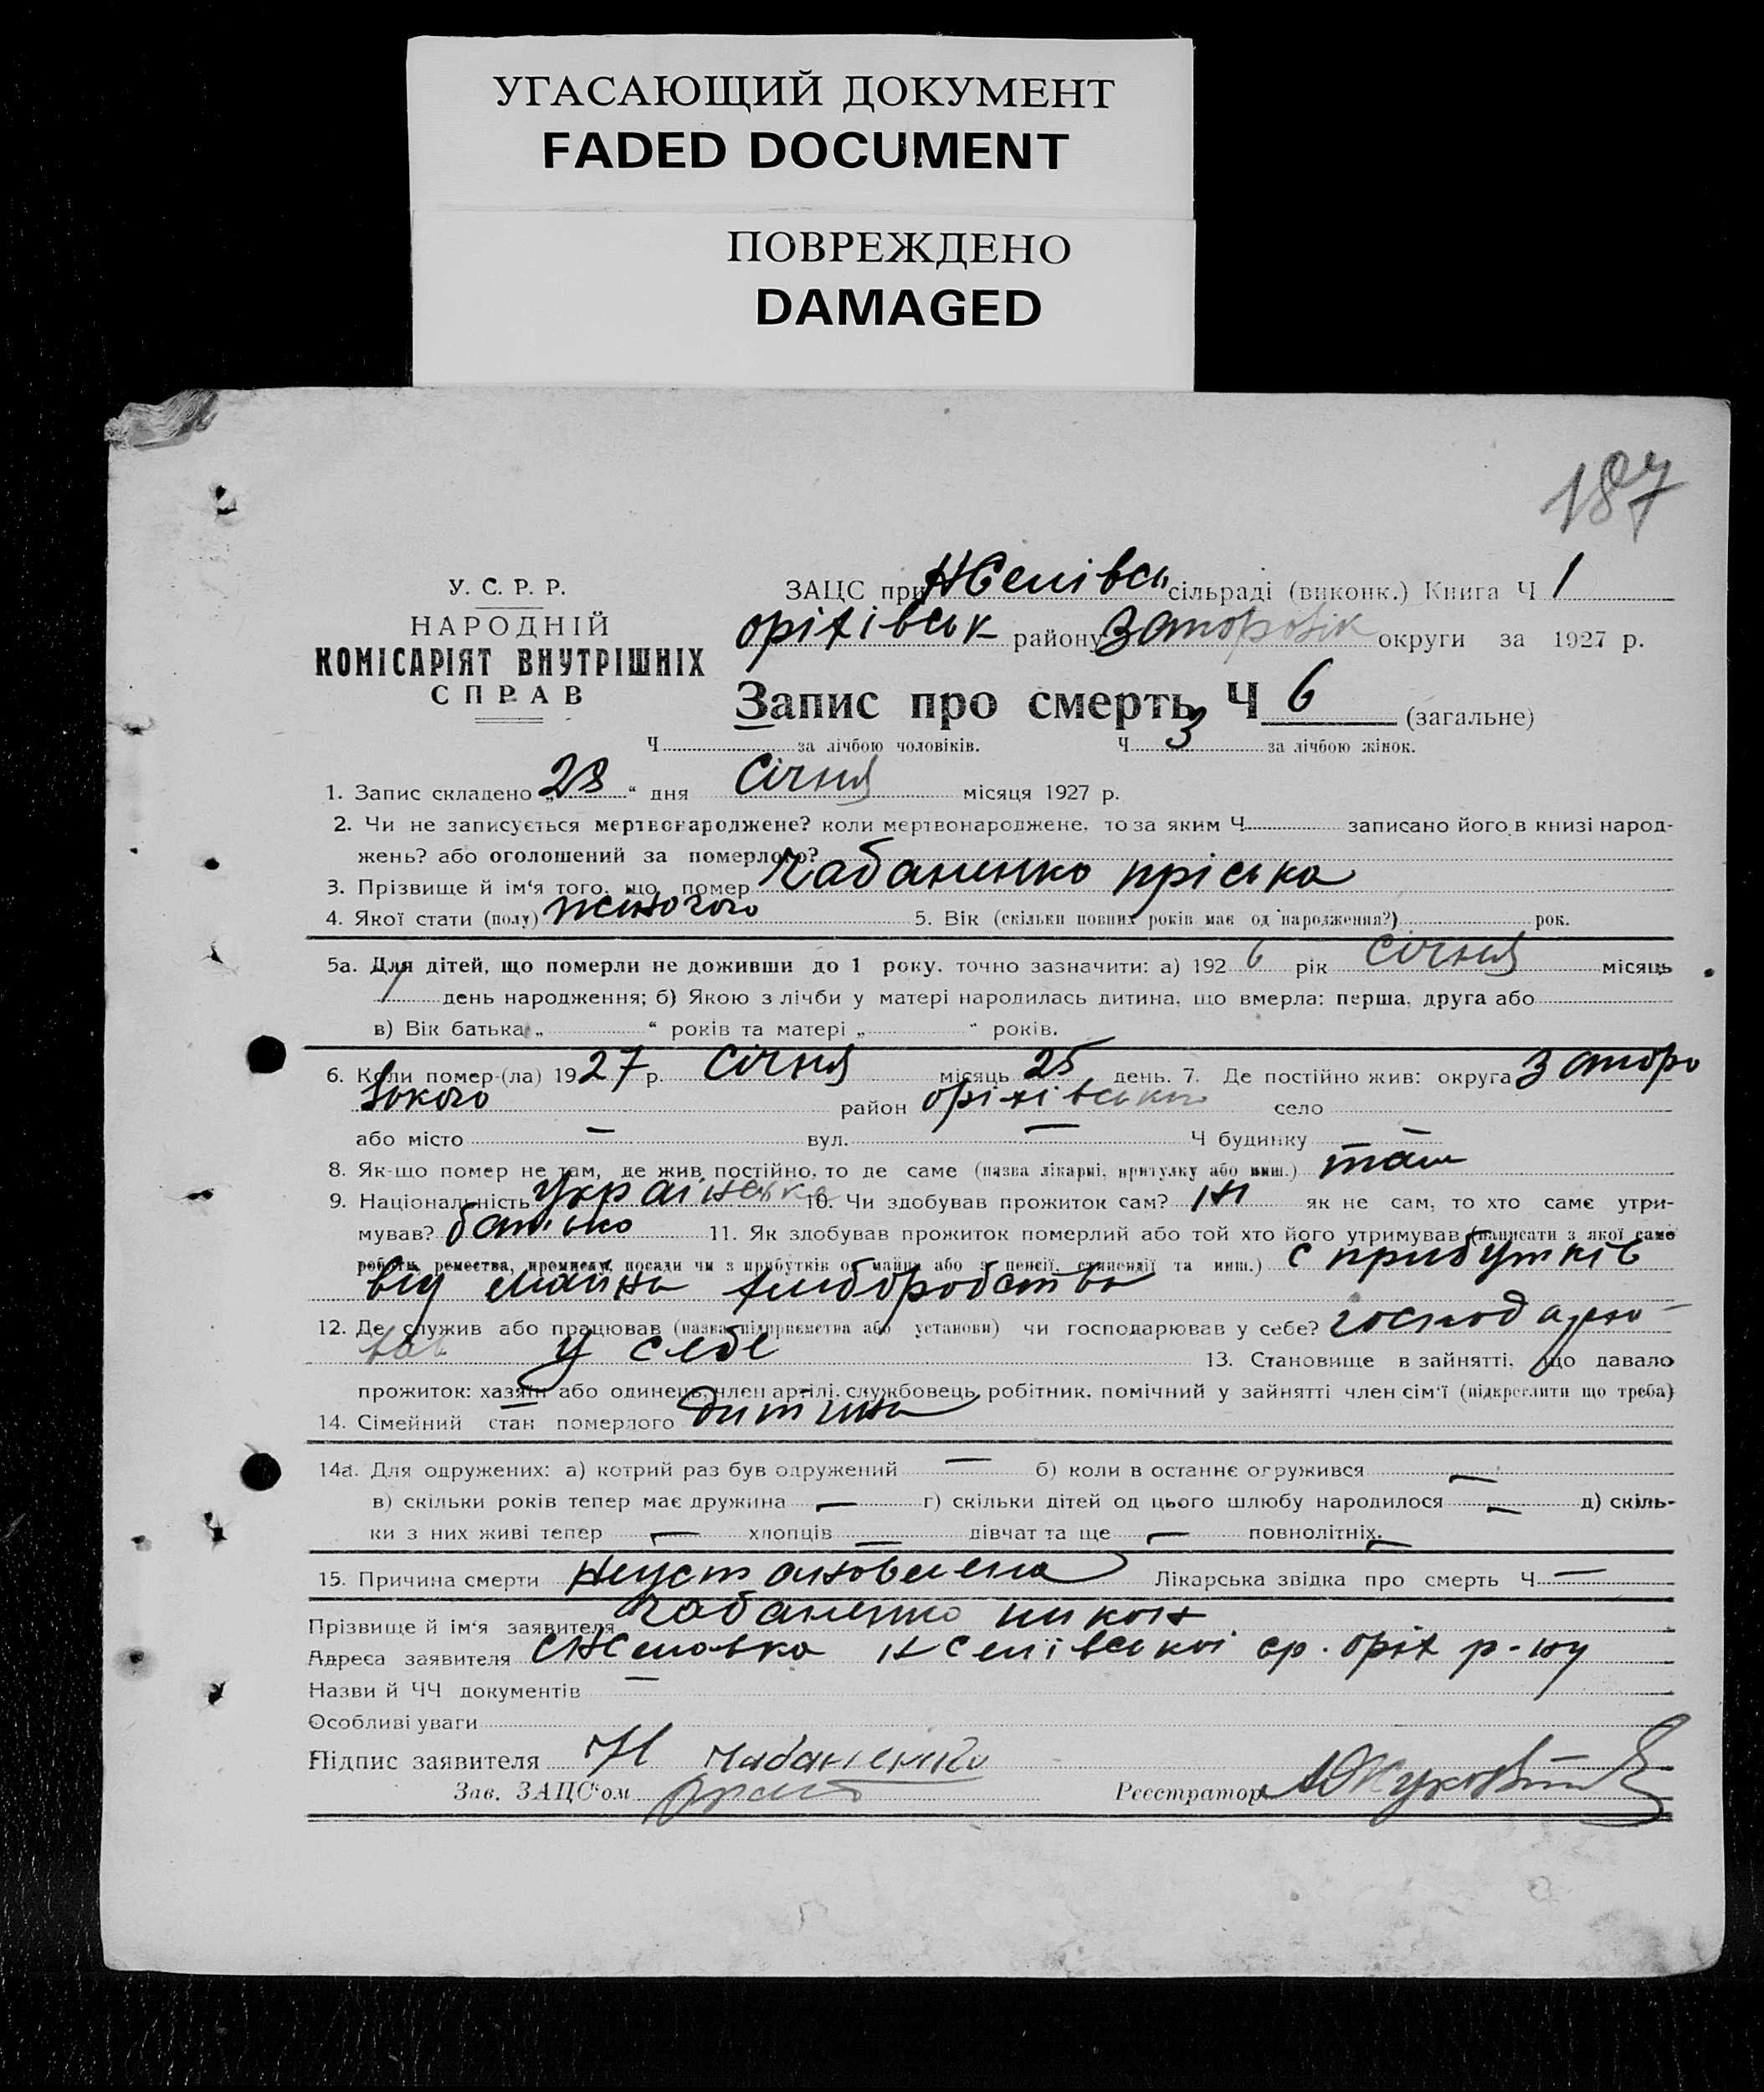 УГАСАЮЩИЙ ДОКУМЕНТ
FADED DOCUMENT
ПОВРЕЖДЕНО
DAMAGED
187
У. С. Р. Р.
НАРОДНІЙ
КОМІСАРІЯТ ВНУТРІШНІХ
СПРАВ
ЗАЦС при сільраді (виконк.) Книга Ч 1
оріхівськ району Запорозік округи за 1927 р.
Запис про смерть Ч 6 (загальне)
Ч за лічбою чоловіків. Ч 3 за лічбою жінок.
1. Запис складено „28“ дня Січня місяця 1927 р.
2. Чи не записується мертвонароджене? коли мертвонароджене, то за яким Ч записано його в книзі народ-
жень? або оголошений за померлого?
3. Прізвище й ім'я того, що помер Чабаненко пріська
4. Якої стати (полу) жіночого 5. Вік (скільки повних років має од народження?) рок.
5а. Для дітей, що померли не доживши до 1 року, точно зазначити: а) 1926 рік Січня місяць
1 день народження; б) Якою з лічби у матері народилась дитина, що вмерла: перша, друга або
в) Вік батька „ “ років та матері „ “ років.
6. Коли помер-(ла) 1927 р. Січня місяць 25 день. 7. Де постійно жив: округа Запоро
зького район оріхівського село
або місто — вул. — Ч будинку —
8. Як-що помер не там, де жив постійно, то де саме (назва лікарні, притулку або инш.) там
9. Національність українка 10. Чи здобував прожиток сам? ні як не сам, то хто саме утри-
мував? батько 11. Як здобував прожиток померлий або той хто його утримував (написати з якої саме
роботи, ремества, промислу, посади чи з прибутків од майна або з пенсії, стипендії та инш.) с прибутків
від майна хліборобства
12. Де служив або працював (назва підприємства або установи) чи господарював у себе? господарю-
вав у себе 13. Становище в зайнятті, що давало
прожиток: хазяїн або одинець, член артілі, службовець, робітник, помічний у зайнятті член сім'ї (підкреслити що треба)
14. Сімейний стан померлого дитина
14а. Для одружених: а) котрий раз був одружений — б) коли в останнє огружився —
в) скільки років тепер має дружина — г) скільки дітей од цього шлюбу народилося — д) скіль-
ки з них живі тепер — хлопців — дівчат та ще — повнолітніх. —
15. Причина смерти Неустановлена Лікарська звідка про смерть Ч —
Прізвище й ім'я заявителя Чабаненко никон
Адреса заявителя ср. оріх р-ну
Назви й ЧЧ документів —
Особливі уваги
Підпис заявителя Н Чабаненко
Зав. ЗАЦС'ом Реєстратор